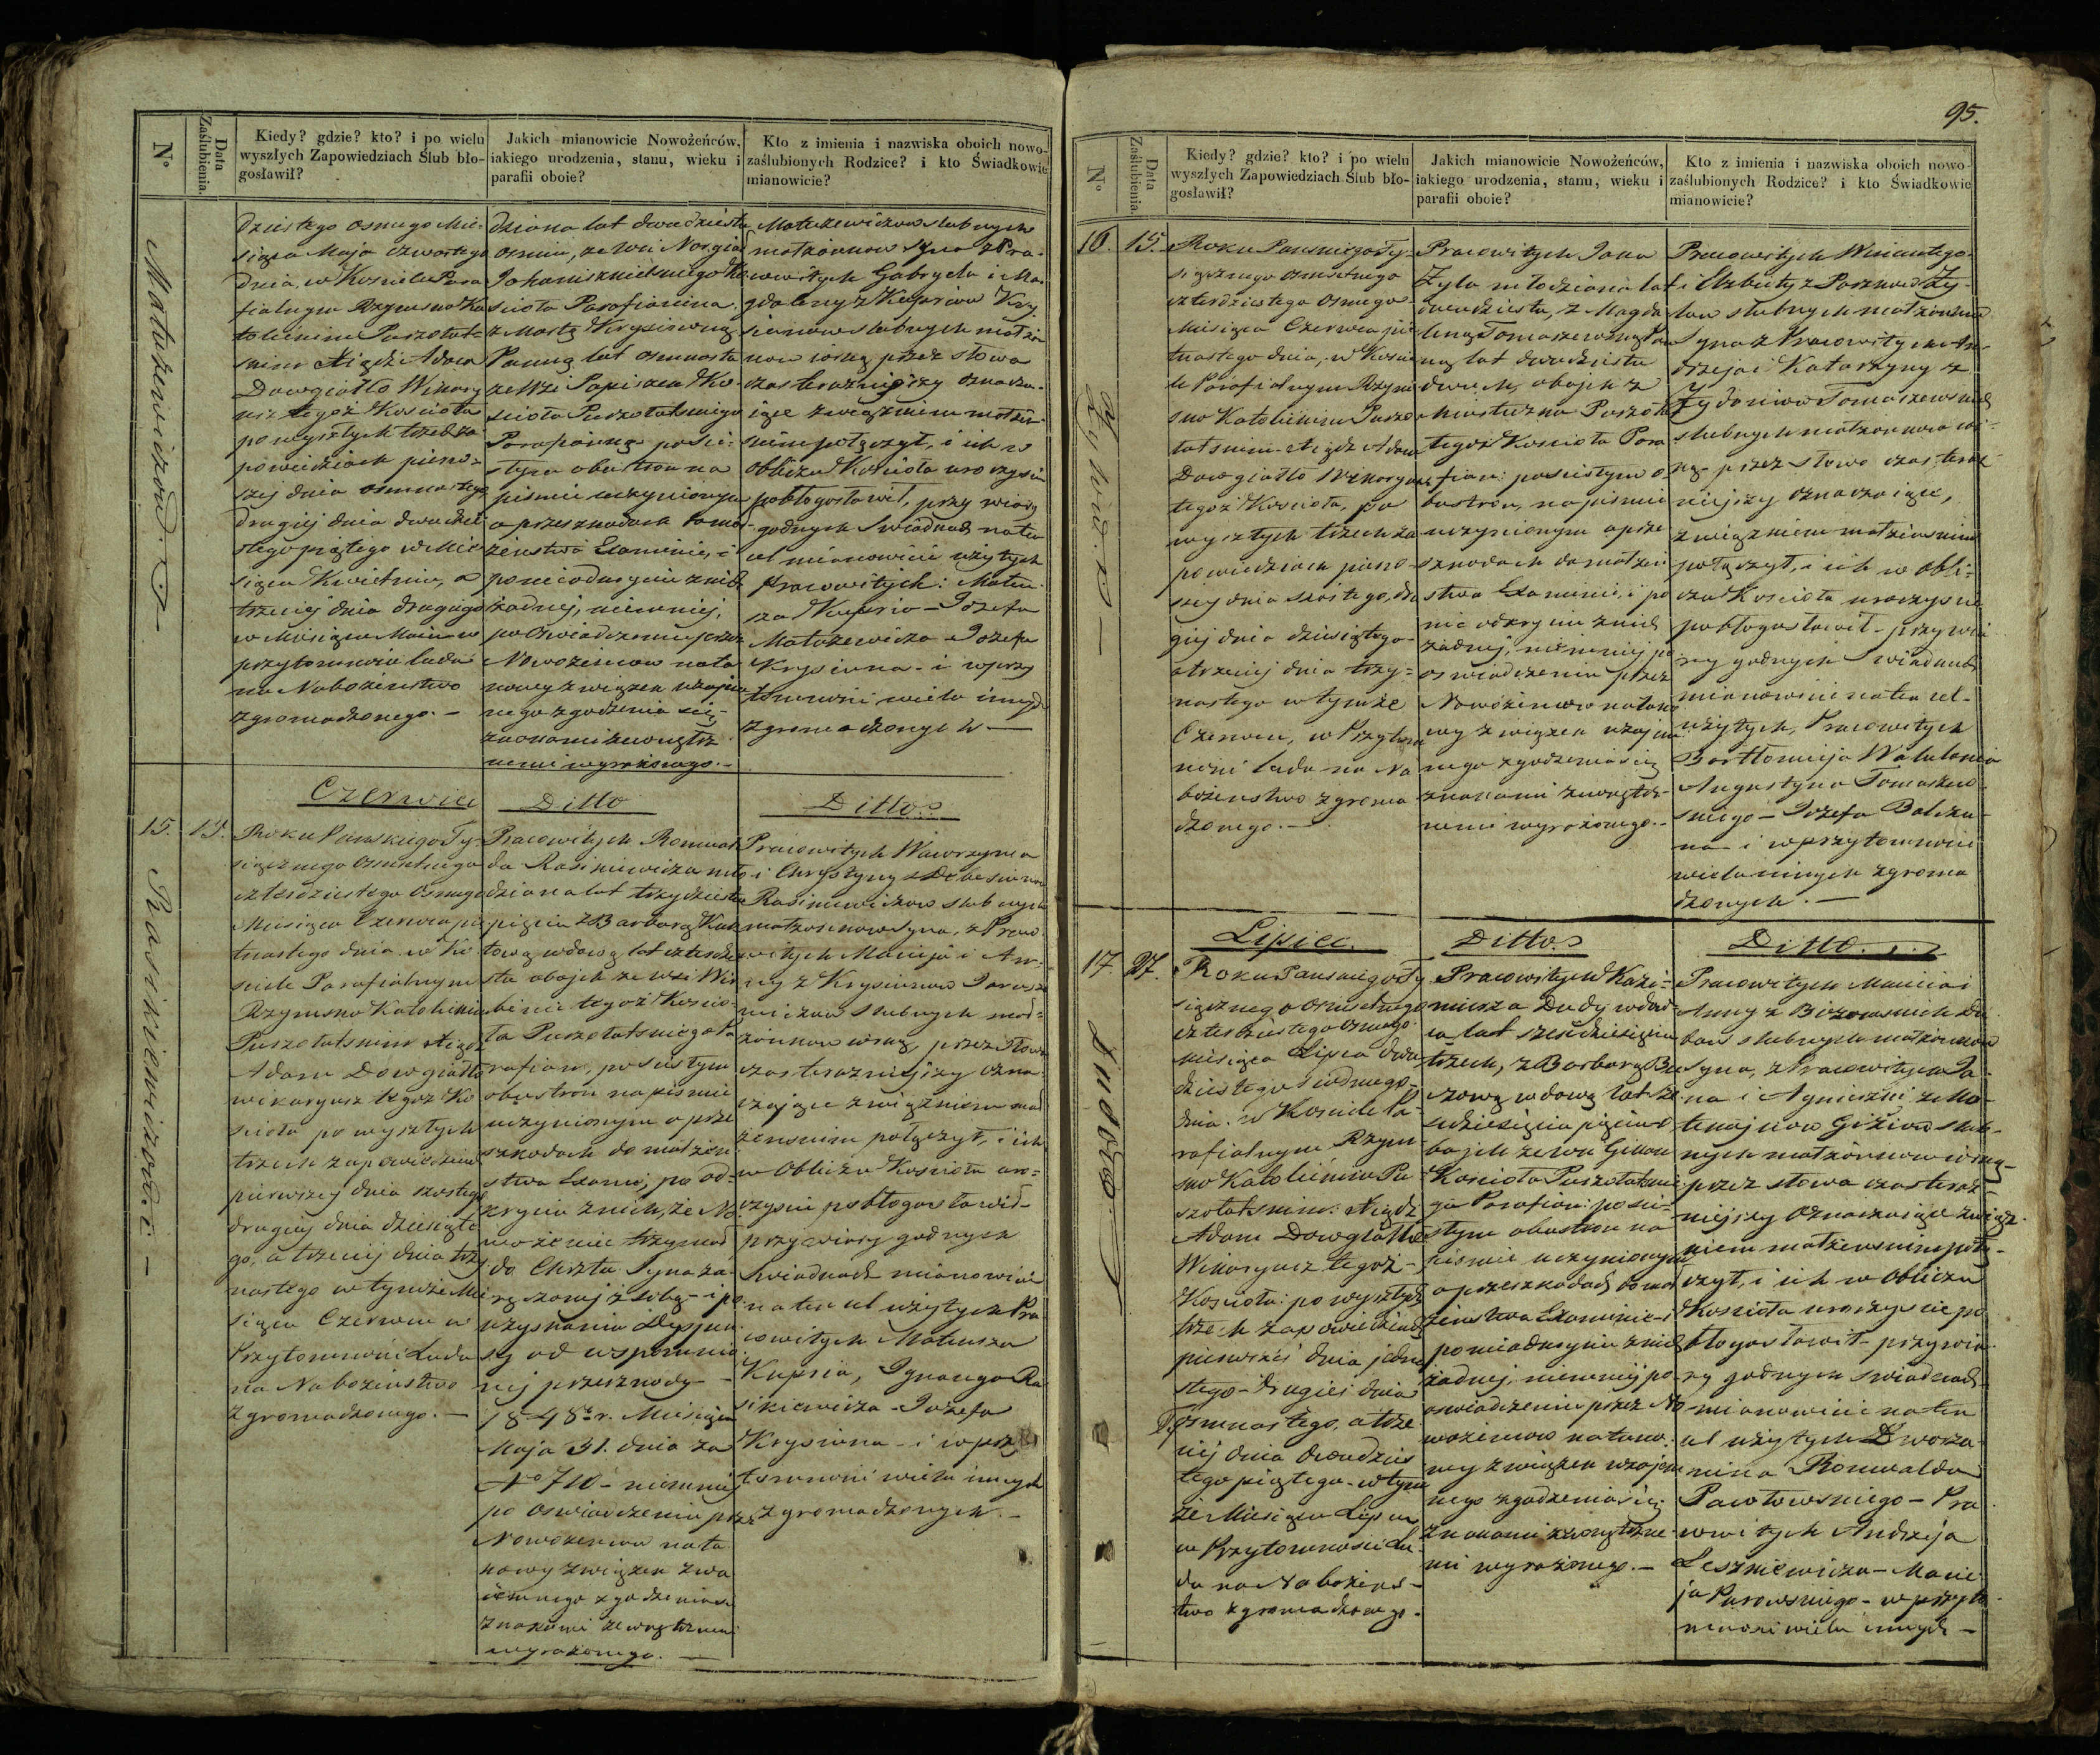 N°
Data Zaślubienia.
Kiedy? gdzie? kto? i po wielu
wyszłych Zapowiedziach Ślub bło-
gosławił?
Jakich mianowicie Nowożeńców,
iakiego urodzenia, stanu, wieku i
parafii oboie?
Kto z imienia i nazwiska oboich nowo-
zaślubionych Rodzice? i kto Świadkowie
mianowicie?
dziestego osmego Mie-
siąca Maja czwartego
dnia, w Kosciele Para
fialnym Rzymsko Ka
tolickim Puszołat-
skim Xiądz Adam
Dowgiałło Wikary
usz tegoż Kościoła
po wyszłych trzech za
powiedziach pierw-
szej dnia osmnastego
drugiej dnia dwudzie
stego piątego w Mie
siącu Kwietniu, a
trzeciej dnia drugiego
w Miesiącu Maiu w
przytomności ludu
na Nabożeństwo
zgromadzonego. –
dziana lat dwadziescia
osmiu, ze wsi
Johaniszkielskiego Ko
scioła Parafianina
z Martą Krysiówną
Panną lat osmnastu
ze Wsi Papiszek Ko-
scioła Puszołatskiego
Parafianką po ści-
słym obustronna
pismie uczynionym
o przeszkodach do mał
żeństwa Examinie, i
po nieodkryciu żadnych
żadnej, niemniej,
po oświadczeniu przez
Nowożeńców na ta
kowy związek wzajem
nego zgodzenia się
znakami zewnętrz
nemi wyrażonego. –
Matuzewiczow slubnych
małżonkow Syna z Pra-
cowitych Gabryela i Ma
gdaleny z Kupriow Kry
sionow slubnych małżon
kow córką przez słowa
czas teraznieyszy oznacza-
iące związkiem małżeń-
skim połączył, i ich w
obliczu Kościoła uroczyscie
pobłogosławił, przy wiary
godnych Swiadkach na ten
cel mianowicie użytych
Pracowitych: Mateu
sza Kuprio – Józefa
Matuzewicza – Józefa
Krysiona – i w przy
tomności wielu innych
zgromadzonych –
Matuzewiczow
Czerwiec
Ditto
Ditto
15.
15.
Rasikiewiczow. –
Roku Pańskiego Ty-
siącznego Osmsetnego
czterdziestego Osmego
Miesiąca Czerwca pię
tnastego dnia w Ko
sciele Parafialnym
Rzymsko Katolickim
Puszołatskim Xiądz
Adam Dowgiałło
wikaryusz tegoż Ko
scioła po wyszłych
trzech zapowiedziach
pierwszey dnia szostego
drugiey dnia dziesiąte
go, a trzeciej dnia trzy
nastego w tymże Mie
siącu Czerwcu w
Przytomności Ludu
na Nabożeństwo
Zgromadzonego. –
Pracowitych Romual
da Rasikiewicza mło
dziana lat trzydziestu
pięciu z Barbarą
wdową lat czterdzie
stu oboich ze wsi
tegoż Koscio-
ła Puszołatskiego Pa
rafian, po scisłym
obustron na pismie
uczynionym o prze
szkodach do małżeń
stwa Examinie, po od-
kryciu z nich, że No
wożeńce trzymali
do Chrztu Syna za-
i po
uzyskaniu Dyspen
sy od wspomnio
nej przeszkody –
1848º r. Miesiąca
Maja 31. dnia za
Nº 710 – niemniej
po oswiadczeniu przez
Nowożeńcow na ta
kowy związek wza
iemnego zgodzenia się
znakami zewnętrznemi
wyrażonego. –
Pracowitych Wawrzyńca
i Chrystyny z
Rasikiewiczow slubnych
małżonkow Syna, z Praco
witych Macieja i An-
ny z Krysionow
slubnych mał-
żonkow córką, przez słowa
czas teraznieyszy ozna
czające związkiem mał
żeńskim połączył, i ich
w Obliczu Kościoła uro-
czyscie pobłogosławił –
przy wiary godnych
Swiadkach mianowicie
na ten cel użytych Pra
cowitych Mateusza
Kupria, Ignacego Ra
sikiewicza – Józefa
Krysiona – i w przy
tomności wielu innych
zgromadzonych. –
95.
N°
Data Zaślubienia.
Kiedy? gdzie? kto? i po wielu
wyszłych Zapowiedziach Ślub bło-
gosławił?
Jakich mianowicie Nowożeńców,
iakiego urodzenia, stanu, wieku i
parafii oboie?
Kto z imienia i nazwiska oboich nowo-
zaślubionych Rodzice? i kto Świadkowie
mianowicie?
16.
15.
Roku Panskiego Ty-
siącznego Osmsetnego
czterdziestego osmego
Miesiąca Czerwca pię
tnastego dnia, w Kosci
le Parafialnym Rzym
sko Katolickim Puszo
łatskim Xiądz Adam
Dowgiałło Wikaryusz
tegoż Kościoła, po
wyszłych trzech za
powiedziach pierw-
szey dnia szóstego, dru
giej dnia dziesiątego
a trzeciej dnia trzy-
nastego w tymże
Czerwcu, w Przytom
ności ludu na Na
bożeństwo zgroma
dzonego. –
Pracowitych Jana
Żyla młodziana lat
dwadziestu, z Magda
leną Tomaszewską Pan
ną lat dwadziestu
dwuch, oboich z
Miasteczka Puszołat
tegoż Kościoła Para
fian: po scisłym o-
bustron, na piśmie
uczynionym o prze
szkodach do małżeń
stwa Examinie, i po
nie odkryciu z nich
żadnej, niemniej po
oswiadczeniu przez
Nowożeńcow na tako
wy związek wzajem
nego zgodzenia się
znakami zewnętrz-
nemi wyrażonego. –
Pracowitych Wincentego
i Elzbiety z
slubnych małżonkow
Syna z Pracowitych An-
drzeja i Katarzyny z
Tomaszewskich
slubnych małżonkow cór-
ką – przez słowa czas teraz-
niejszy oznaczaiące,
związkiem małżeńskim
połączył, i ich w obli-
czu Kościoła uroczyscie
pobłogosławił – przy wia
ry godnych Swiadkach
mianowicie na ten cel –
użytych, Pracowitych
Bartłomieja
Augustyna Tomaszew-
skiego – Józefa
i w przytomności
wielu innych zgroma
dzonych. –
Lipiec.
Ditto
Ditto
17.
27.
Dudow.
Roku Panskiego Ty
siącznego Osmsetnego
czterdziestego Osmego
miesiąca Lipca dwu
dziestego siodmego
dnia. w Kosciele Pa-
rafialnym Rzym-
sko Katolickim Pu-
szołatskim. Xiądz
Adam Dowgiałło
Wikaryusz tegoż –
Kościoła: po wyszłych
trzech zapowiedziach
pierwszéj dnia jedna
stego – drugiej dnia
osmnastego, a trze
ciej dnia dwudzies
tego piątego – w tym
że Miesiącu Lipcu
w Przytomności Lu-
du na Nabożeńs-
two zgromadzonego. –
Pracowitych Kazi-
mierza Dudy wdow-
ca lat sześćdziesięciu
trzech, z Barbarą
wdową lat
pięciu o
boich ze wsi
Kościoła Puszołatskie
go Parafian: po sci-
słym obustron na
pismie uczynionym
o przeszkodach do mał
żeństwa Examinie – i
po nieodkryciu z nich
żadnej, niemniej po
oswiadczeniu przez No
wożeńcow na tako-
wy związek wzajem
nego zgodzenia się
znakami zewnętrzne
mi wyrażonego. –
Pracowitych Macieia i
Anny z Du
dow slubnych małżonkow
Syna, z Pracowitych Ja-
na i Agnieszki z
slub-
nych małżonkow córką –
przez słowa czas teraz-
niejszy Oznaczaiące związ-
kiem małżeńskim połą-
czył, i ich w obliczu
Kościoła uroczyscie po
błogosławił – przy wia-
ry godnych swiadkach
mianowicie na ten
cel użytych Dworza
nina Romualda
Pawłowskiego – Pra
cowitych Andrzeja
Leszkiewicza – Macie
ja – w przyto
mności wielu innych –